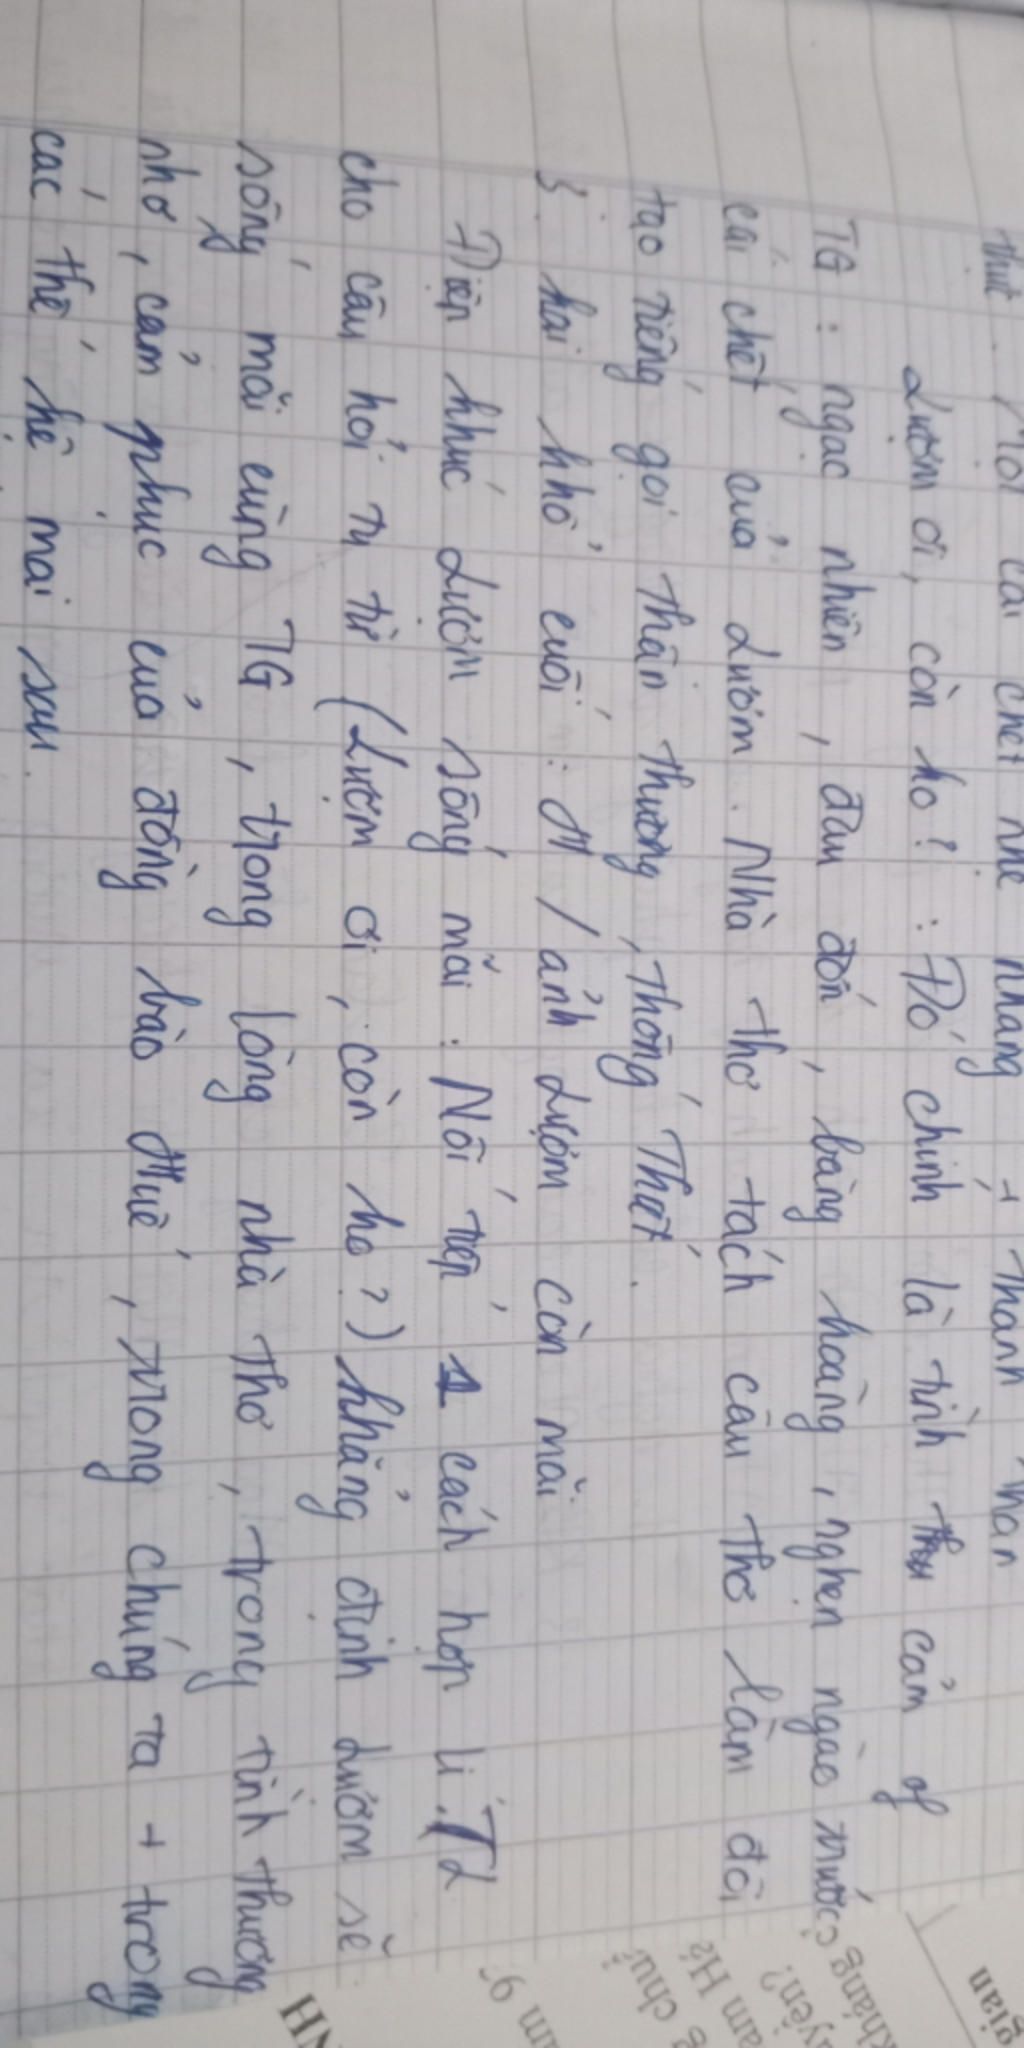 thuê. Một cái chết nhẹ nhàng + thanh thản
Lượm ơi, còn ko? : Đó chính là tình cảm of
TG : ngạc nhiên, đau đớn, bàng hoàng, nghẹn ngào trước
cái chết của Lượm. Nhà thơ tách câu thơ làm đôi
tạo tiếng gọi thân thương, thống thiết.
3. hai khổ cuối : H/ảnh Lượm còn mãi
Điệp khúc Lượm sống mãi : Nối tiếp 1 cách hợp lí. TL
cho câu hỏi tu từ (Lượm ơi, còn ko?) khẳng định Lượm sẽ
sống mãi cùng TG, trong lòng nhà thơ, trong tình thương
nhớ, cảm phục của đồng bào Huế, trong chúng ta + trong
các thế hệ mai sau.
gian
kháng c
uyện?
am H
g chu
am 9
NH